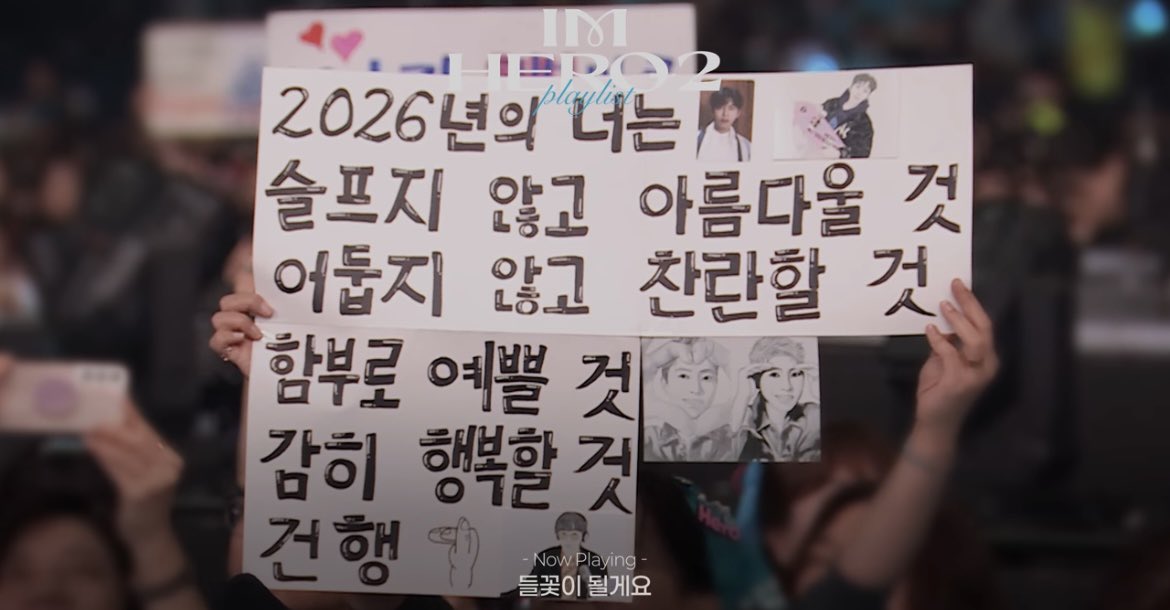 IM
HERO 2
playlist
2026년의 너는
슬프지 않고 아름다울 것
어둡지 않고 찬란할 것
함부로 예쁠 것
감히 행복할 것
건행
Hero
- Now Playing -
들꽃이 될게요